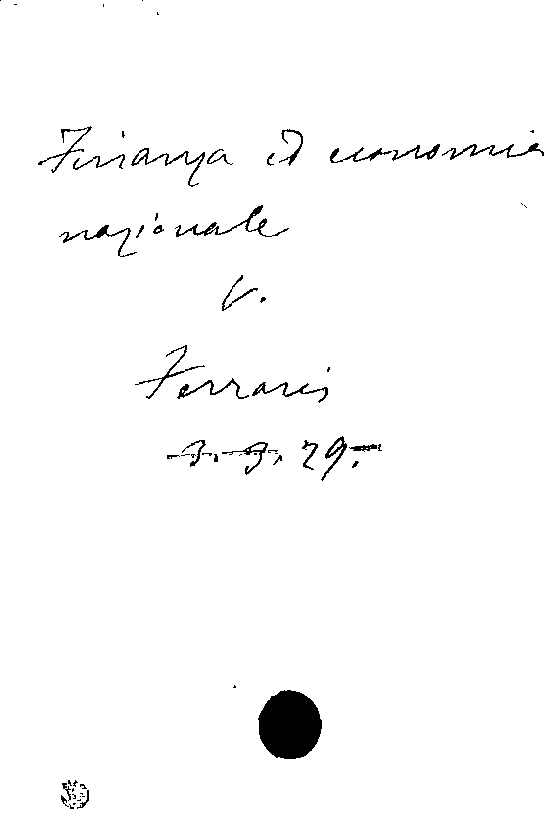 Finanza ed economia
nazionale
v.
Ferraris
3. 3. 29.